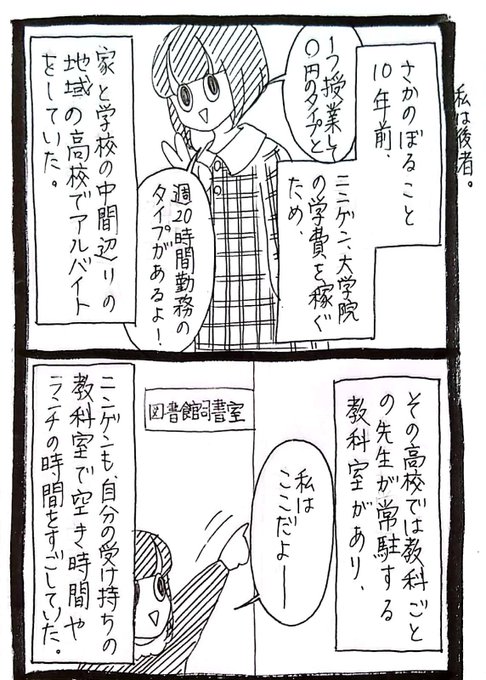 さかのぼること
10年前、
1つ授業して
〇円のタイプと
ニンゲン、大学院
の学費を稼ぐ
ため、
週20時間勤務の
タイプがあるよー!
家と学校の中間辺りの
地域の高校でアルバイト
をしていた。
私は後者。
その高校では教科ごと
の先生が常駐する
教科室があり、
図書館司書室
私は
ここだよー
ニンゲンも、自分の受け持ちの
教科室で空き時間や
ランチの時間をすごしていた。